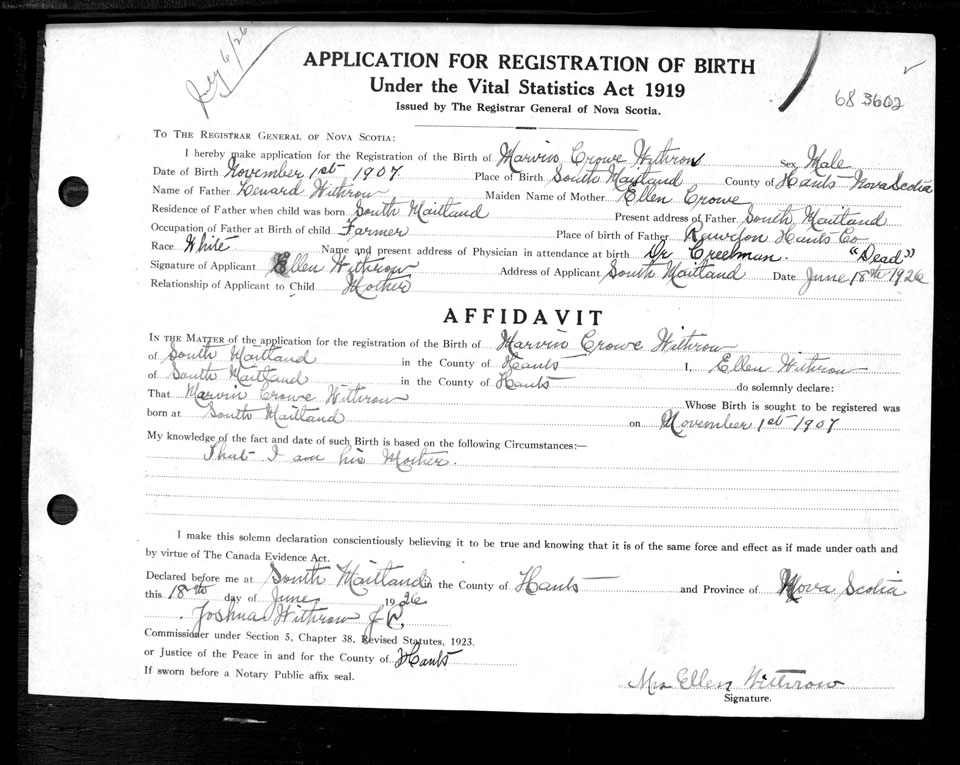 July 6/26
APPLICATION FOR REGISTRATION OF BIRTH
Under the Vital Statistics Act 1919
Issued by The Registrar General of Nova Scotia.
68 3602
TO THE REGISTRAR GENERAL OF NOVA SCOTIA:
I hereby make application for the Registration of the Birth of Marvin Crowe Withrow Sex Male
Date of Birth November 1st 1907 Place of Birth South Maitland County of Hants Nova Scotia
Name of Father Withrow Maiden Name of Mother Ellen Crowe
Residence of Father when child was born South Maitland Present address of Father South Maitland
Occupation of Father at Birth of child Farmer Place of birth of Father Rawdon Hants Co
Race White Name and present address of Physician in attendance at birth Dr Creelman. "Dead"
Signature of Applicant Ellen Withrow Address of Applicant South Maitland Date June 18th 1926
Relationship of Applicant to Child Mother
AFFIDAVIT
IN THE MATTER of the application for the registration of the Birth of Marvin Crowe Withrow
of South Maitland in the County of Hants I, Ellen Withrow
of South Maitland in the County of Hants do solemnly declare:
That Marvin Crowe Withrow Whose Birth is sought to be registered was
born at South Maitland on November 1st 1907
My knowledge of the fact and date of such Birth is based on the following Circumstances:—
That I am his Mother.
I make this solemn declaration conscientiously believing it to be true and knowing that it is of the same force and effect as if made under oath and
by virtue of The Canada Evidence Act.
Declared before me at South Maitland in the County of Hants and Province of Nova Scotia
this 18th day of June 1926
Joshua Withrow J.P.
Commissioner under Section 5, Chapter 38, Revised Statutes, 1923.
or Justice of the Peace in and for the County of Hants
If sworn before a Notary Public affix seal.
Mrs Ellen Withrow
Signature.